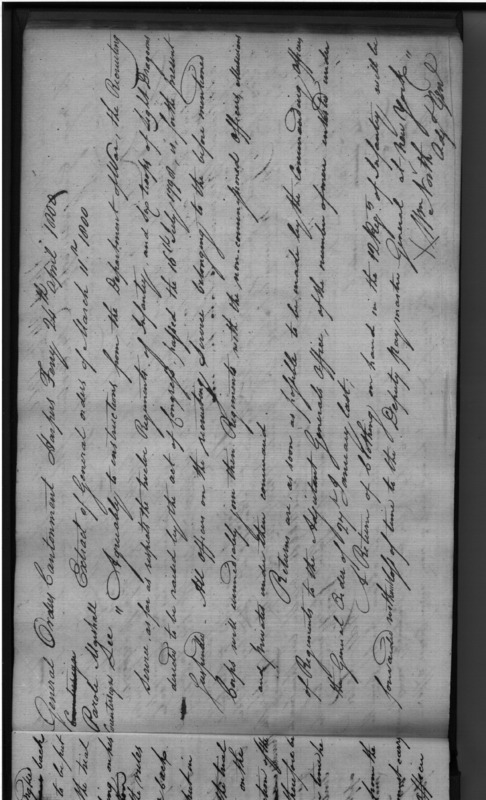 General Orders Cantonment Harpers Ferry 24th April 1800
Parole Marshall
Extract of General orders of March 11th 1800
Countersign Lee
" Agreeably to instructions from the Department of War, the Recruiting
Service as far as respects the twelve Regiments of Infantry and six troops of Light Dragoons
directed to be raised by the act of Congress passed the 16th July 1798, is for the present
suspended. All officers on the recruiting service belonging to the before mentioned
Corps will immediately join their Regiments with the non commissioned officers, Musicians
and privates under their command
Returns are as soon as possible to be made by the Commanding Officers
of Regiments to the Adjutant Generals Office, of the number of men enlisted under
the General Orders of January last,
A Return of Clothing on hand in the 12 Regts of Infantry will be
forwarded without loss of time to the Deputy Paymaster General at New York "
Wm North
Adjt Genl
back
to be put
the trial
rules
back
the trial
on the
of the
from the
every
officer